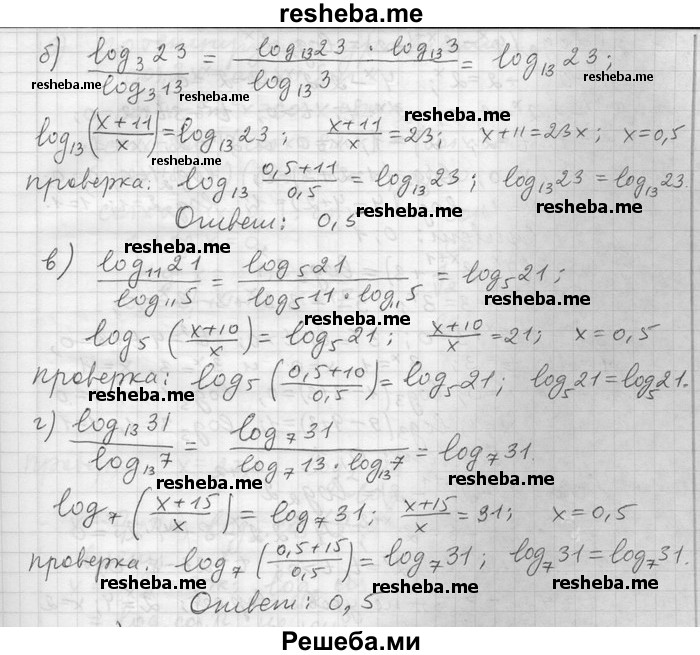 resheba.me
б) log₃23 / log₃13 = log₁₃23 · log₁₃3 / log₁₃3 = log₁₃23;
resheba.me resheba.me resheba.me
log₁₃(x+11 / x) = log₁₃23; x+11 / x = 23; x+11=23x; x=0,5
resheba.me resheba.me
проверка: log₁₃ 0,5+11 / 0,5 = log₁₃23; log₁₃23 = log₁₃23.
Ответ: 0,5
resheba.me resheba.me
в) log₁₁21 / log₁₁5 = log₅21 / log₅11 · log₁₁5 = log₅21;
resheba.me resheba.me resheba.me
log₅ (x+10 / x) = log₅21; x+10 / x = 21; x=0,5
проверка: log₅ (0,5+10 / 0,5) = log₅21; log₅21 = log₅21.
resheba.me resheba.me
г) log₁₃31 / log₁₃7 = log₇31 / log₇13 · log₁₃7 = log₇31.
resheba.me resheba.me
log₇ (x+15 / x) = log₇31; x+15 / x = 31; x=0,5
проверка. log₇ (0,5+15 / 0,5) = log₇31; log₇31 = log₇31.
resheba.me resheba.me resheba.me
Ответ: 0,5
Решеба.ми